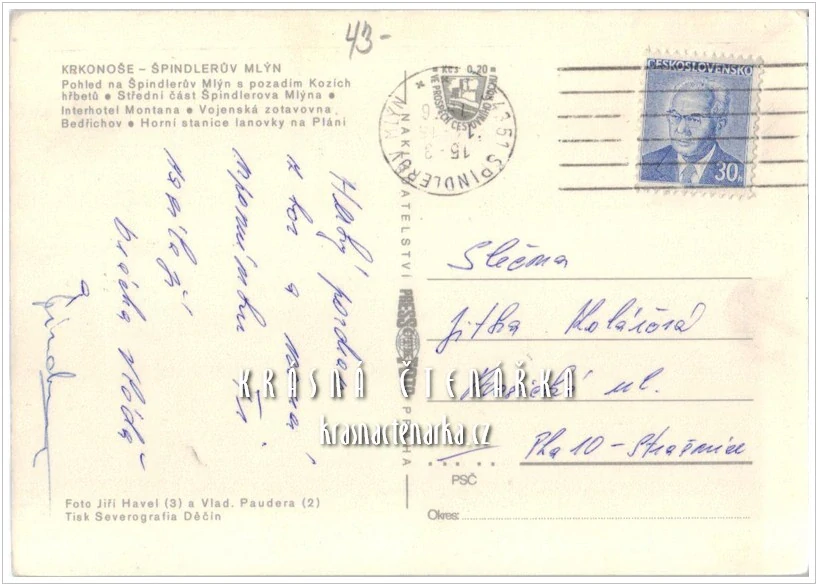 43-
KRKONOŠE – ŠPINDLERŮV MLÝN
Pohled na Špindlerův Mlýn s pozadím Kozích
hřbetů • Střední část Špindlerova Mlýna •
Interhotel Montana • Vojenská zotavovna
Bedřichov • Horní stanice lanovky na Pláni
Kčs 0,20
54351 ŠPINDLERŮV MLÝN
ČESKOSLOVENSKO
30h
NAKLADATELSTVÍ PRESSFOTO PRAHA
Hezký pozdrav
z hor a
vzpomínku Ti
zasílají
Slečna
Jitka Kolářová
ul.
Pha 10 - Strašnice
KRÁSNÁ ČTENÁŘKA
krasnactenarka.cz
PSČ
Okres:
Foto Jiří Havel (3) a Vlad. Paudera (2)
Tisk Severografia Děčín